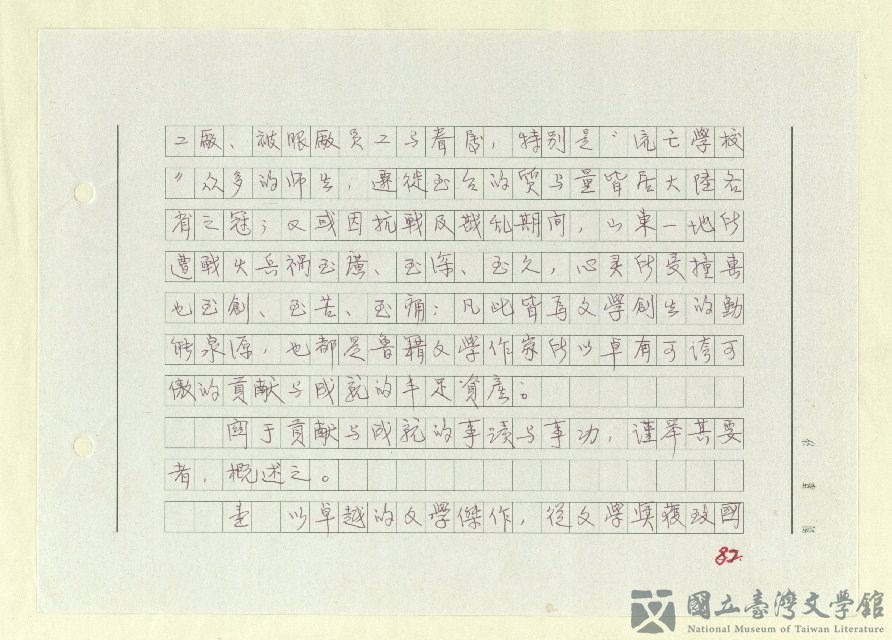 工廠、被服廠員工与眷屬，特別是〝流亡學校
〞众多的师生，遷徙至台的質与量皆居大陸各
省之冠；又或因抗戰及戡乱期间，山東一地所
遭戰火兵祸至廣、至深、至久，心灵所受撞击
也至創、至苦、至痛；凡此皆為文學創生的動
能泉源，也都是魯籍文學作家所以卓有可誇可
傲的貢献与成就的丰足資產。
関于貢献与成就的事蹟与事功，謹举其要
者，概述之。
壹 以卓越的文學傑作，從文學奨獲致國
82.
國立臺灣文學館
National Museum of Taiwan Literature